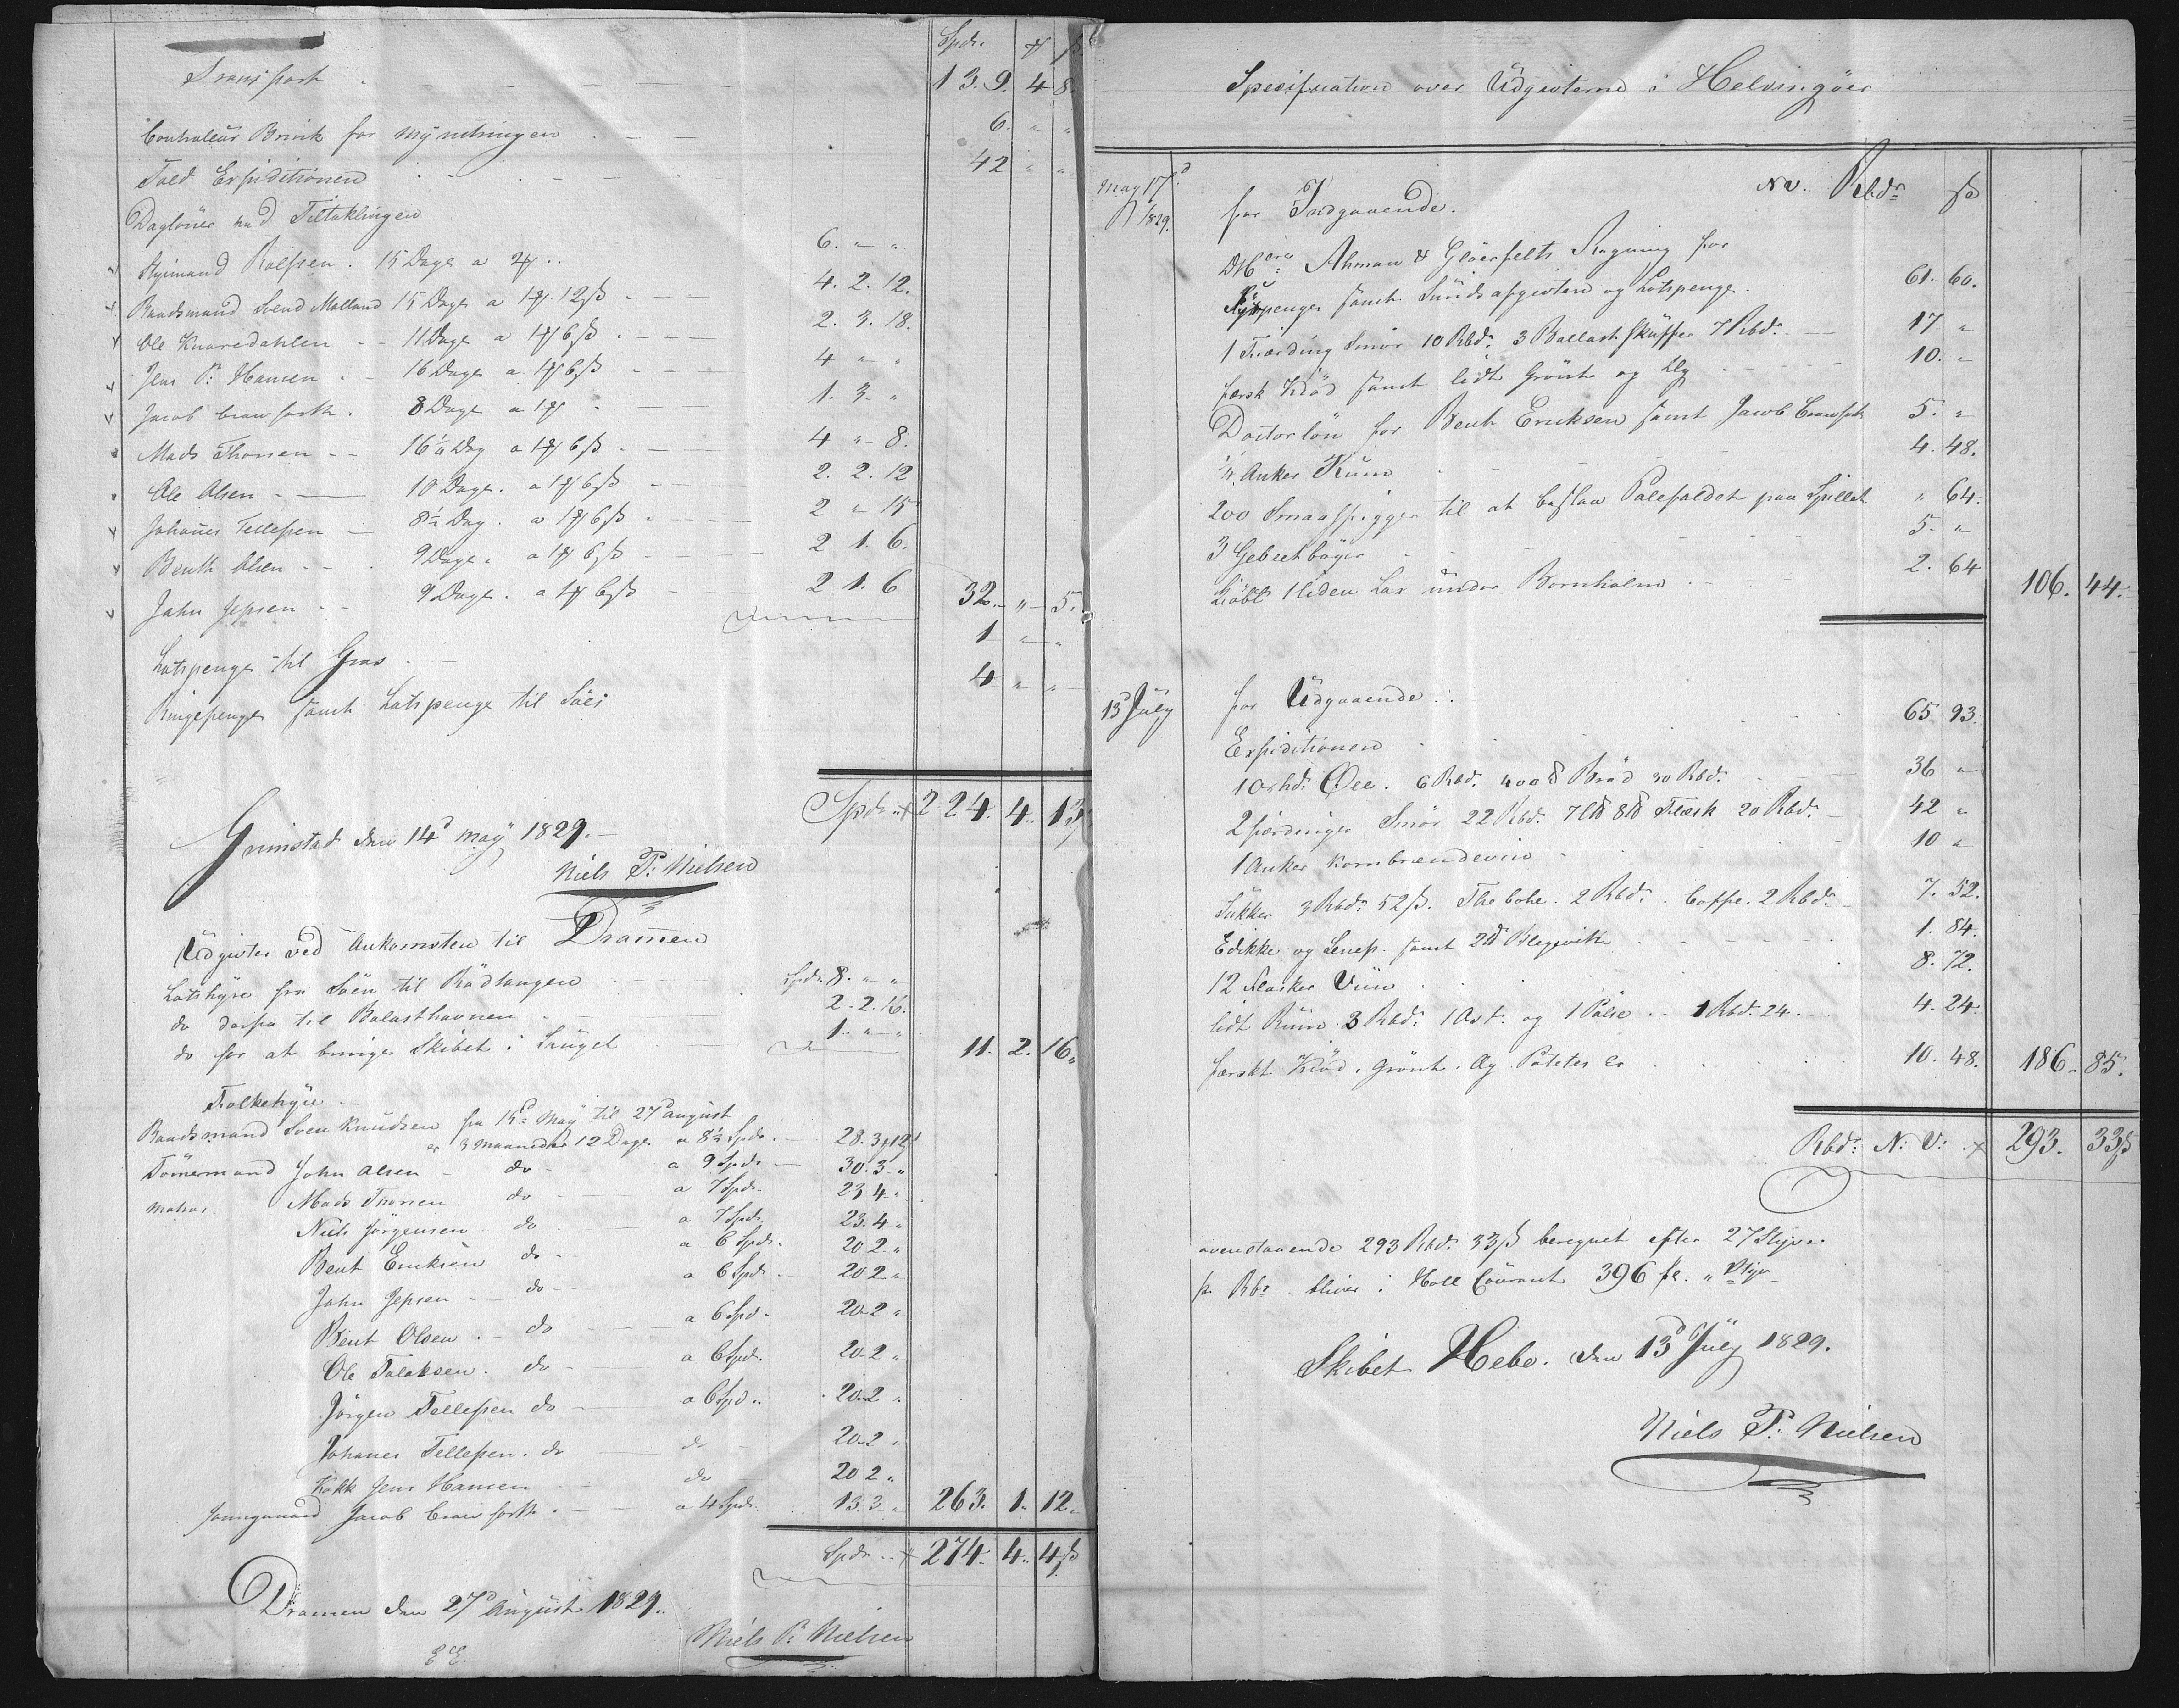 Spdr. ℔ ß
Transport 139. 4 8.
Controleur Brink for Myndtringen 6. " "
Told Expiditionen 42 " "
Daglöner ved Tiltaklingen
Styrmand Rolfsen. 15 Dage a 2 ℔ 6. " "
Baadsmand Svend Malland 15 Dage a 1 ℔ 12 ß 4. 2. 12.
Ole Knaredahlen 11 Dage a 1 ℔ 6 ß 2. 3. 18.
Jens P: Hansen 16 Dage a 1 ℔ 6 ß 4 " "
Jacob 8 Dage a 1 ℔ 1. 3. "
Mads Thorsen 16½ Dag a 1 ℔ 6 ß 4 " 8.
Ole Olsen 10 Dage. a 1 ℔ 6 ß 2. 2. 12
Johanes Tellefsen 8½ Dag. a 1 ℔ 6 ß 2 " 15
Benth Olsen 9 Dage. a 1 ℔ 6 ß 2 1. 6.
Jahn Jepsen 9 Dage. a 1 ℔ 6 ß 2 1. 6 32. " 5.
Lotspenge til 1 " "
Ringepenge samt Lotspenge til Söes 4 " "
Spdr. 224. 4. 13 ß
Grimstad den 14d May 1829.
Niels P: Nielsen
Udgivter ved Ankomsten til Dramen
Lotshyre fra Söen til Rödtangen Spdr. 8. " "
do derfra til Balasthavnen 2. 2. 16.
do for at bringe Skibet i 1. " " 11. 2. 16
Folkehyre
Baadsmand Sven Knudsen fra 15d May til 27d august
er 3 Maaneder 12 Dage a 8½ Spdr. 28. 3 ℔ 12 ß
Tömermand John Olsen do a 9 Spdr 30. 3. "
Matros Mads Thorsen do a 7 Spdr. 23 4 "
Niels Jörgensen do a 7 Spdr. 23. 4 "
Bent Eriksen do a 6 Spdr. 20 2 "
John Jepsen do a 6 Spdr. 20 2 "
Bent Olsen do a 6 Spd. 20 2 "
Ole Talaksen. do a 6 Spd. 20 2 "
Jörgen Tellefsen do a 6 Spd. 20 2 "
Johanes Tellefsen. do do 20 2 "
Kokk Jens Hansen do 20 2 "
Jacob a 4 Spdr. 13. 3 " 263. 1. 12
Spdr. 274. 4. 4 ß
Dramen den 27d August 1829.
Niels P: Nielsen
Spesification over Udgivterne i Helsingöer
May 17d 1829. for Indgaaende. NV. Rbdr ß
Ahman & Glöerfelts Regning for
samt Sundsafgivten og Lotspenge 61. 60.
1 Fierding Smör 10 Rbdr. 3 Ballast Skuffer 7 Rbdr. 17 "
fersk Kiöd samt lidt Grönt og 10. "
Doctorlön for Bent Eriksen samt Jacob 5. "
Anker Rum 4. 48.
200 Smaaspigger til at beslaa Palefaldet paa Spillet " 64.
3 Geberhöger 5. "
Kiöbt 1 liden Lax under Bornholm 2. 64 106. 44.
13 July for Udgaaende.
Expiditionen 65 93.
10 shd. Öll. 6 Rbd. 400 ℔ Bröd 30 Rbd. 36 "
2 fierdinger Smör 22 Rbd. 7 L℔ 8 ℔ Flæsk 20 Rbd. 42 "
1 Anker Kornbrændeviin 10 "
Sukker 3 Rbd. 52 ß. The bohe. 2 Rbd. Coffe. 2 Rbd. 7. 52.
Edikke og Senep. samt 2 ℔ 1. 84.
12 Flasker Viin 8. 72.
lidt Rum 3 Rbd. 1 Ost. og 1 Pölse 1 Rbd. 24. 4. 24.
ferskt Kiöd. Grönt. Og Poteter 10. 48. 186. 85.
Rbd: N: V: 293. 33 ß
ovenstaaende 293 Rbd. 33 ß beregnet efter 27 Styver
pr. Rbr bliver i Holl Courant 396 fl. " Styv
Skibet Hebe. den 13d July 1829.
Niels P: Nielsen